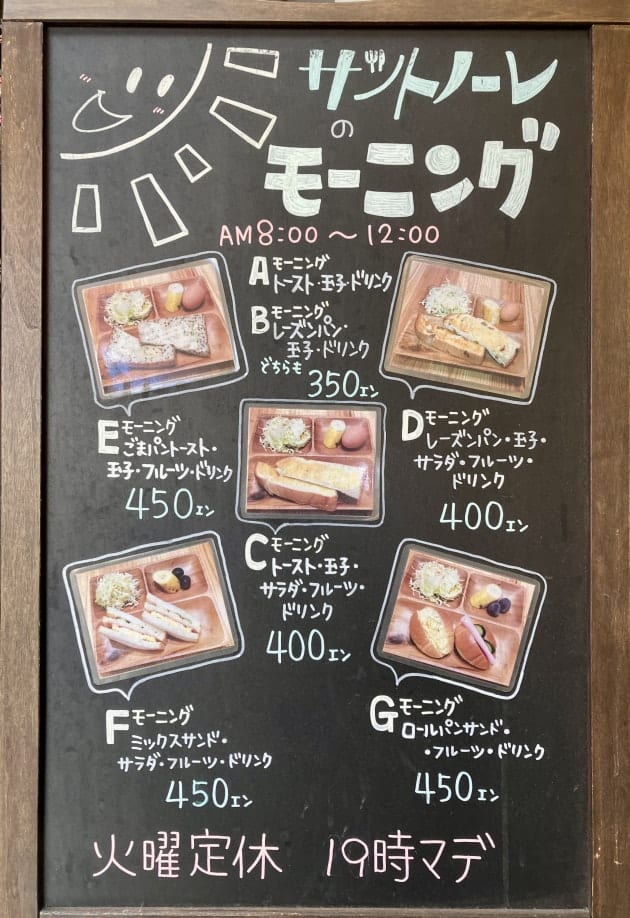 サットノーレ
の
モーニング
AM8:00～12:00
A モーニング
トースト・玉子・ドリンク
B モーニング
レーズンパン・
玉子・ドリンク
どちらも
350エン
E モーニング
ごまパントースト・
玉子・フルーツ・ドリンク
450エン
D モーニング
レーズンパン・玉子・
サラダ・フルーツ・
ドリンク
400エン
C モーニング
トースト・玉子・
サラダ・フルーツ・
ドリンク
400エン
F モーニング
ミックスサンド・
サラダ・フルーツ・ドリンク
450エン
G モーニング
ロールパンサンド・
・フルーツ・ドリンク
450エン
火曜定休 19時マデ